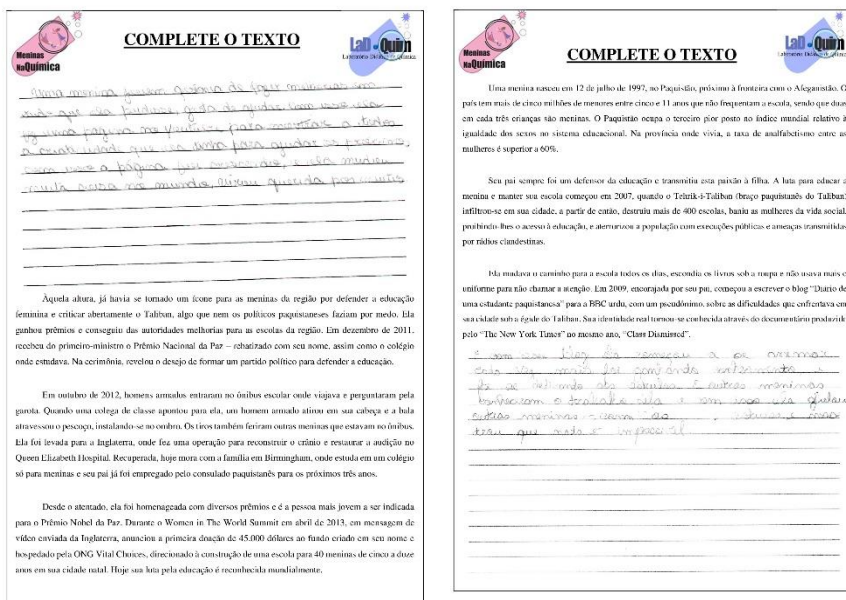 Meninas
NaQuímica
COMPLETE O TEXTO
LaD Quim
Uma menina jovem gostava de fazer
onde que ela pudesse, gosta de ajudar com isso ela
fez uma página no Youtube para mostrar a todos
a criatividade que ela tinha para ajudar as pessoas,
com isso a página foi crescendo, e ela mudou
muita coisa no mundo, virou querida por muitos
Àquela altura, já havia se tornado um ícone para as meninas da região por defender a educação
feminina e criticar abertamente o Taliban, algo que nem os políticos paquistaneses faziam por medo. Ela
ganhou prêmios e conseguiu das autoridades melhorias para as escolas da região. Em dezembro de 2011,
recebeu do primeiro-ministro o Prêmio Nacional da Paz – rebatizado com seu nome, assim como o colégio
onde estudava. Na cerimônia, revelou o desejo de formar um partido político para defender a educação.
Em outubro de 2012, homens armados entraram no ônibus escolar onde viajava e perguntaram pela
garota. Quando uma colega de classe apontou para ela, um homem armado atirou em sua cabeça e a bala
atravessou o pescoço, instalando-se no ombro. Os tiros também feriram outras meninas que estavam no ônibus.
Ela foi levada para a Inglaterra, onde fez uma operação para reconstruir o crânio e restaurar a audição no
Queen Elizabeth Hospital. Recuperada, hoje mora com a família em Birmingham, onde estuda em um colégio
só para meninas e seu pai já foi empregado pelo consulado paquistanês para os próximos três anos.
Desde o atentado, ela foi homenageada com diversos prêmios e é a pessoa mais jovem a ser indicada
para o Prêmio Nobel da Paz. Durante o Women in The World Summit em abril de 2013, em mensagem de
vídeo enviada da Inglaterra, anunciou a primeira doação de 45.000 dólares ao fundo criado em seu nome e
hospedado pela ONG Vital Choices, direcionado à construção de uma escola para 40 meninas de cinco a doze
anos em sua cidade natal. Hoje sua luta pela educação é reconhecida mundialmente.
Meninas
NaQuímica
COMPLETE O TEXTO
LaD Quim
Uma menina nasceu em 12 de julho de 1997, no Paquistão, próximo à fronteira com o Afeganistão. O
país tem mais de cinco milhões de menores entre cinco e 11 anos que não frequentam a escola, sendo que duas
em cada três crianças são meninas. O Paquistão ocupa o terceiro pior posto no índice mundial relativo à
igualdade dos sexos no sistema educacional. Na província onde vivia, a taxa de analfabetismo entre as
mulheres é superior a 60%.
Seu pai sempre foi um defensor da educação e transmitiu esta paixão à filha. A luta para educar a
menina e manter sua escola começou em 2007, quando o Tehrik-i-Taliban (braço paquistanês do Taliban)
infiltrou-se em sua cidade, a partir de então, destruiu mais de 400 escolas, baniu as mulheres da vida social,
proibindo-lhes o acesso à educação, e aterrorizou a população com execuções públicas e ameaças transmitidas
por rádios clandestinas.
Ela mudava o caminho para a escola todos os dias, escondia os livros sob a roupa e não usava mais o
uniforme para não chamar a atenção. Em 2009, encorajada por seu pai, começou a escrever o blog "Diário de
uma estudante paquistanesa" para a BBC urdu, com um pseudônimo, sobre as dificuldades que enfrentava em
sua cidade sob a égide do Taliban. Sua identidade real tornou-se conhecida através do documentário produzido
pelo "The New York Times" no mesmo ano, "Class Dismissed".
e com esse blog ela começou a se
cada vez mais foi ganhando
foi se outras meninas
conheceram o trabalho dela e com isso ela ajudou
outras meninas
trou que nada é